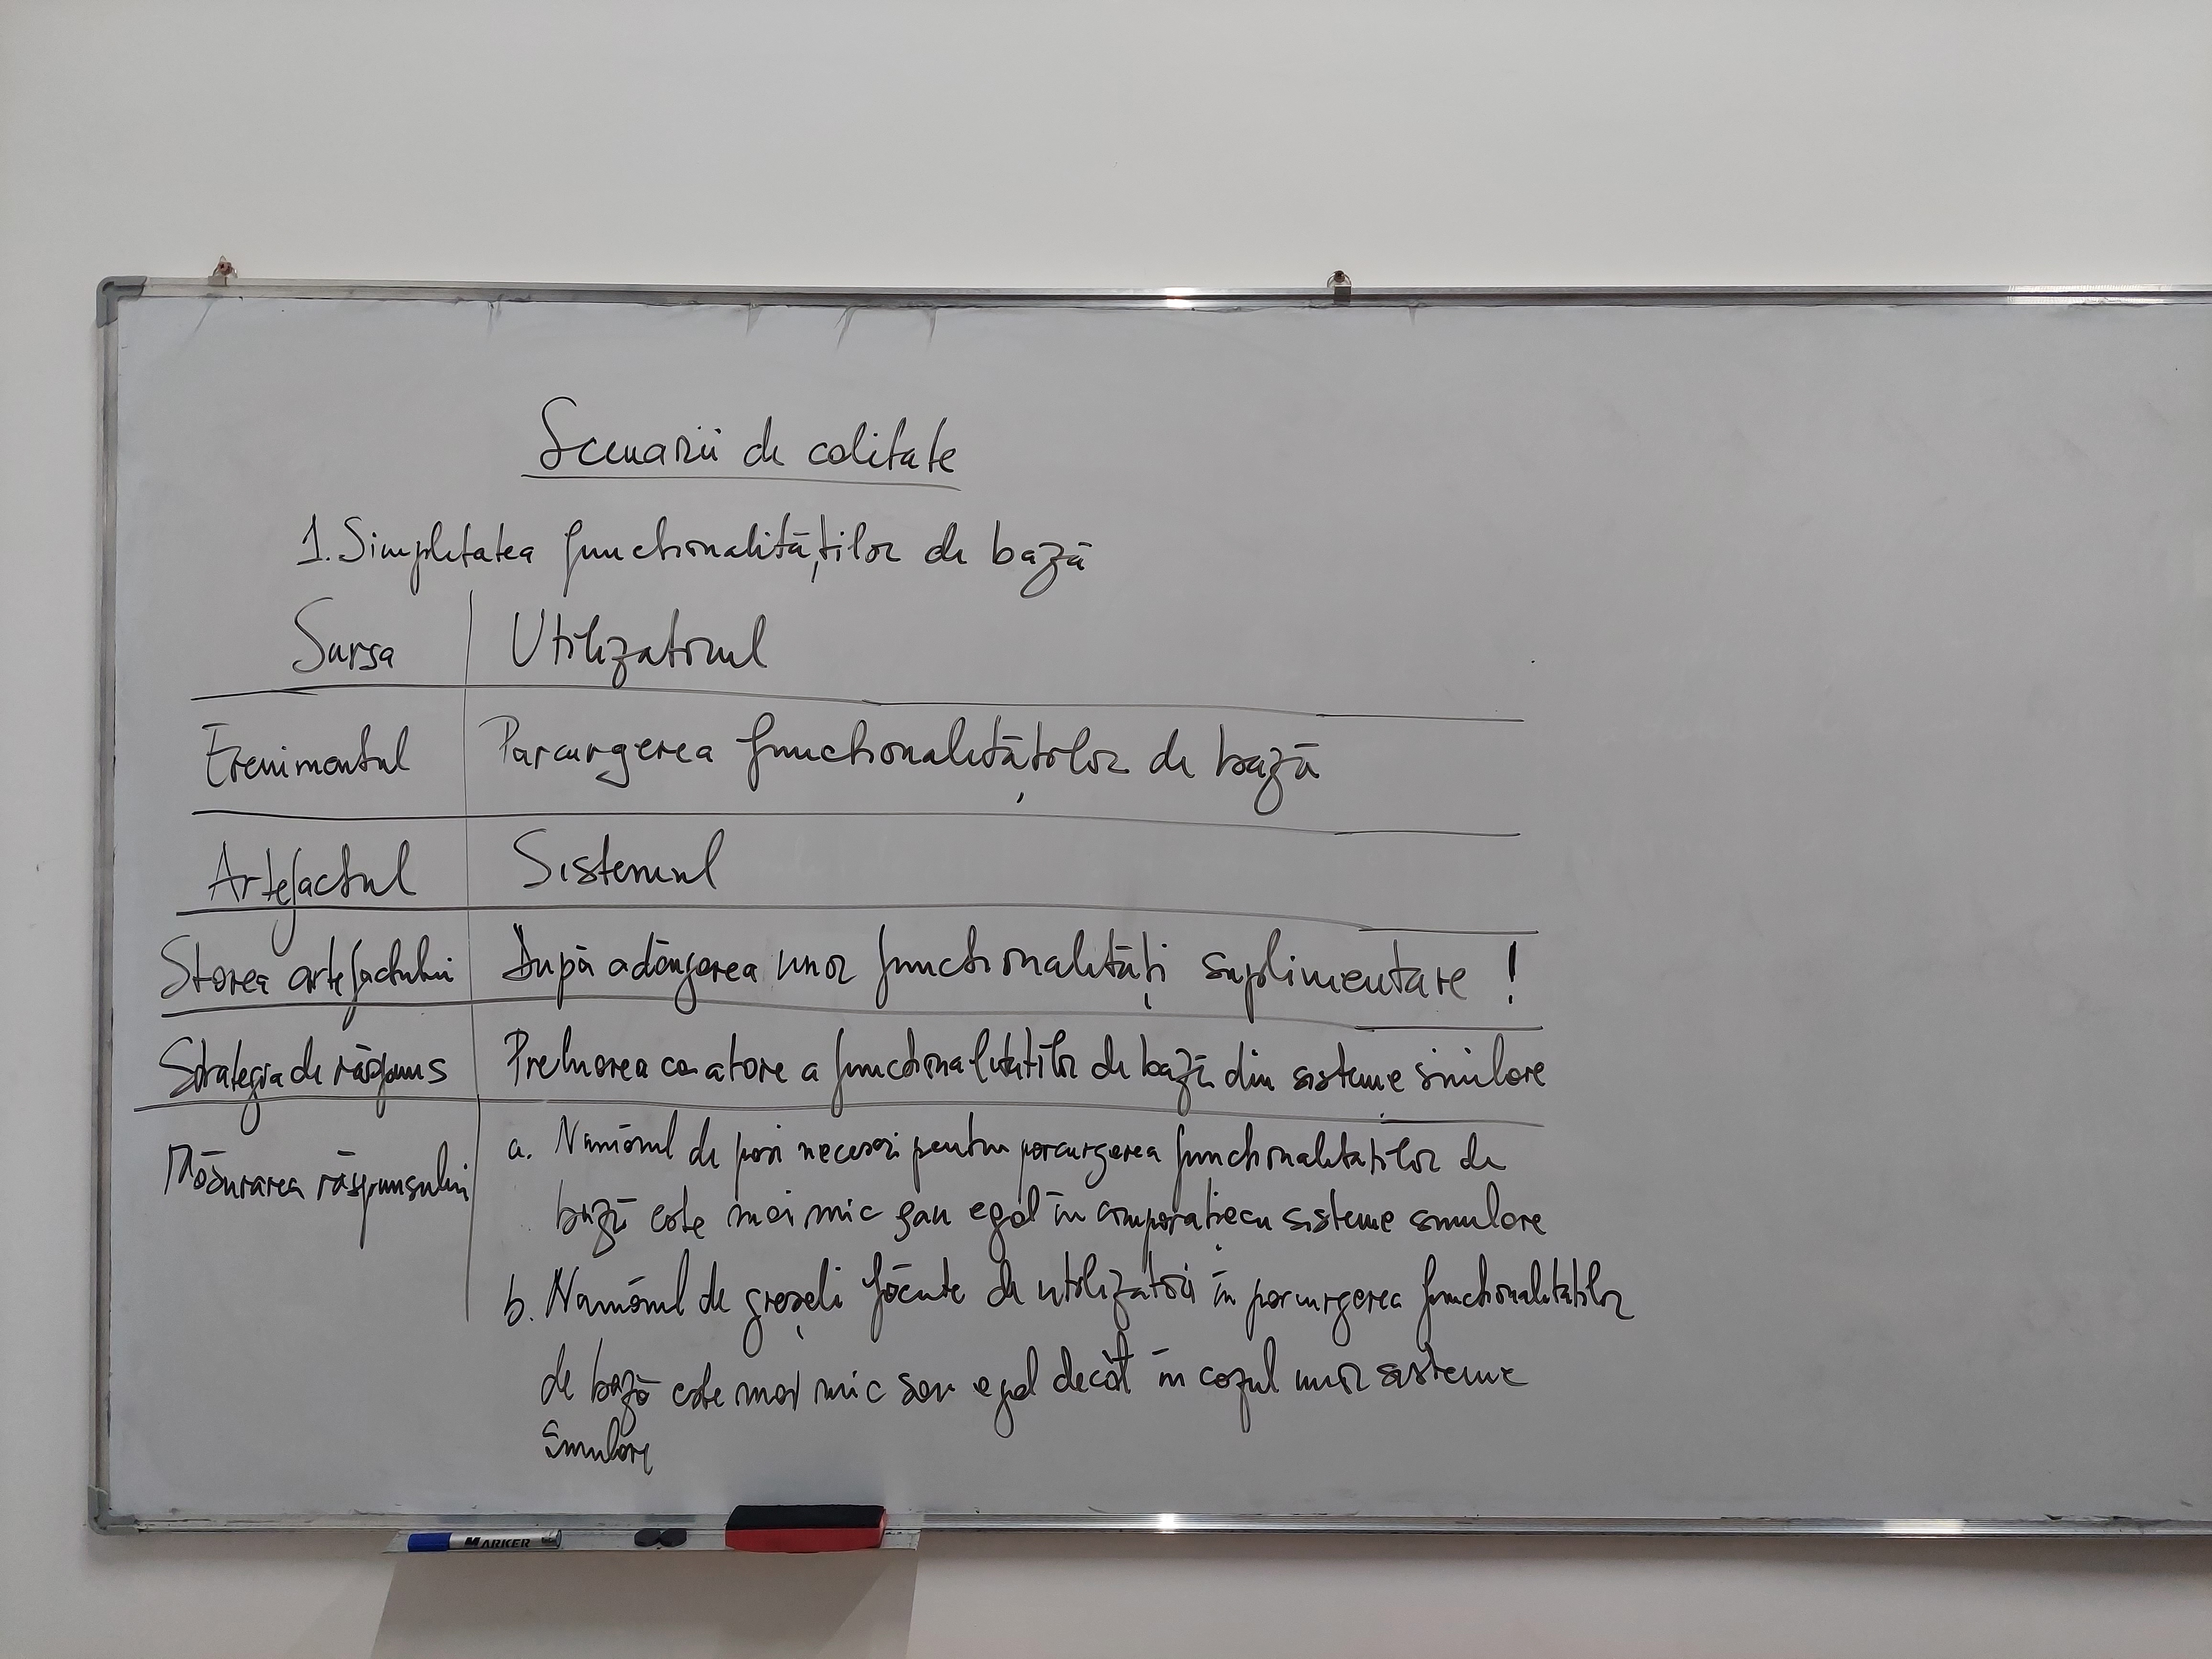 Scenarii de calitate
1. Simplitatea funcționalităților de bază
Sursa | Utilizatorul
Evenimentul | Parcurgerea funcționalităților de bază
Artefactul | Sistemul
Starea artefactului | După adăugarea unor funcționalități suplimentare !
Strategia de răspuns | Preluarea ca atare a funcționalităților de bază din sisteme similare
Măsurarea răspunsului | a. Numărul de pași necesari pentru parcurgerea funcționalităților de
bază este mai mic sau egal în comparație cu sisteme similare
b. Numărul de greșeli făcute de utilizatori în parcurgerea funcționalitatilor
de bază este mai mic sau egal decât în cazul unor sisteme
similare
MARKER